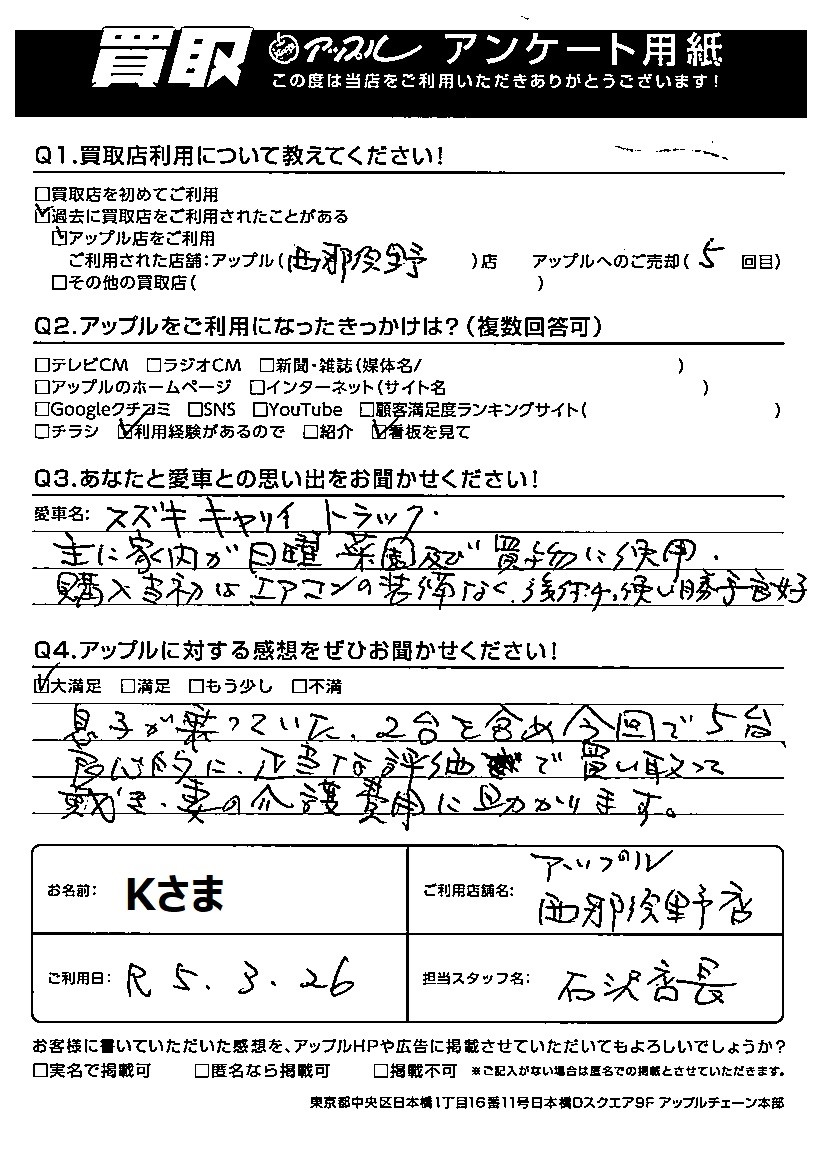 買取 アップル アンケート用紙
この度は当店をご利用いただきありがとうございます!
Q1.買取店利用について教えてください!
□買取店を初めてご利用
☑過去に買取店をご利用されたことがある
☑アップル店をご利用
ご利用された店舗:アップル(西那須野)店 アップルへのご売却(5回目)
□その他の買取店( )
Q2.アップルをご利用になったきっかけは?(複数回答可)
□テレビCM □ラジオCM □新聞・雑誌(媒体名/ )
□アップルのホームページ □インターネット(サイト名 )
□Googleクチコミ □SNS □YouTube □顧客満足度ランキングサイト( )
□チラシ ☑利用経験があるので □紹介 ☑看板を見て
Q3.あなたと愛車との思い出をお聞かせください!
愛車名: スズキ キャリイ トラック.
主に家内が日曜菜園及び買い物に使用.
購入当初はエアコンの装備なく、後付け、使い勝手良好
Q4.アップルに対する感想をぜひお聞かせください!
☑大満足 □満足 □もう少し □不満
息子が乗っていた、2台を含め今回で5台
良心的に、正当な評価で買い取って
戴き、妻の介護費用に助かります。
お名前: Kさま
ご利用店舗名: アップル
西那須野店
ご利用日: R5.3.26
担当スタッフ名: 石沢店長
お客様に書いていただいた感想を、アップルHPや広告に掲載させていただいてもよろしいでしょうか?
□実名で掲載可 □匿名なら掲載可 □掲載不可 ※ご記入がない場合は匿名での掲載とさせていただきます。
東京都中央区日本橋1丁目16番11号日本橋Dスクエア9F アップルチェーン本部